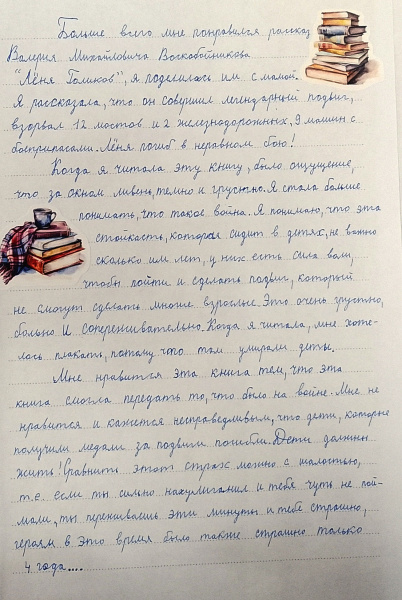 Больше всего мне понравился рассказ
Валерия Михайловича Воскобойникова
"Лёня Голиков", я поделилась им с мамой.
Я рассказала, что он совершил легендарный подвиг,
взорвал 12 мостов и 2 железнодорожных, 9 машин с
боеприпасами. Лёня погиб в неравном бою!
Когда я читала эту книгу, было ощущение,
что за окном ливень, темно и грустно. Я стала больше
понимать, что такое война. Я понимаю, что эта
стойкасть, которая сидит в детях, не важно
сколько им лет, у них есть сила воли,
чтобы пойти и сделать подвиг, который
не смогут сделать многие взрослые. Это очень грустно,
больно и сопереживательно. Когда я читала, мне хоте-
лось плакать, потому что там умирали дети.
Мне нравится эта книга тем, что эта
книга смогла передать то, что было на войне. Мне не
нравится и кажется несправедливым, что дети, которые
получили медали за подвиги погибли. Дети должны
жить! Сравнить этот страх можно с шалостью,
т.е. если ты сильно нахулиганил и тебя чуть не пой-
мали, ты переживаешь эти минуты и тебе страшно,
героям в это время было также страшно только
4 года....